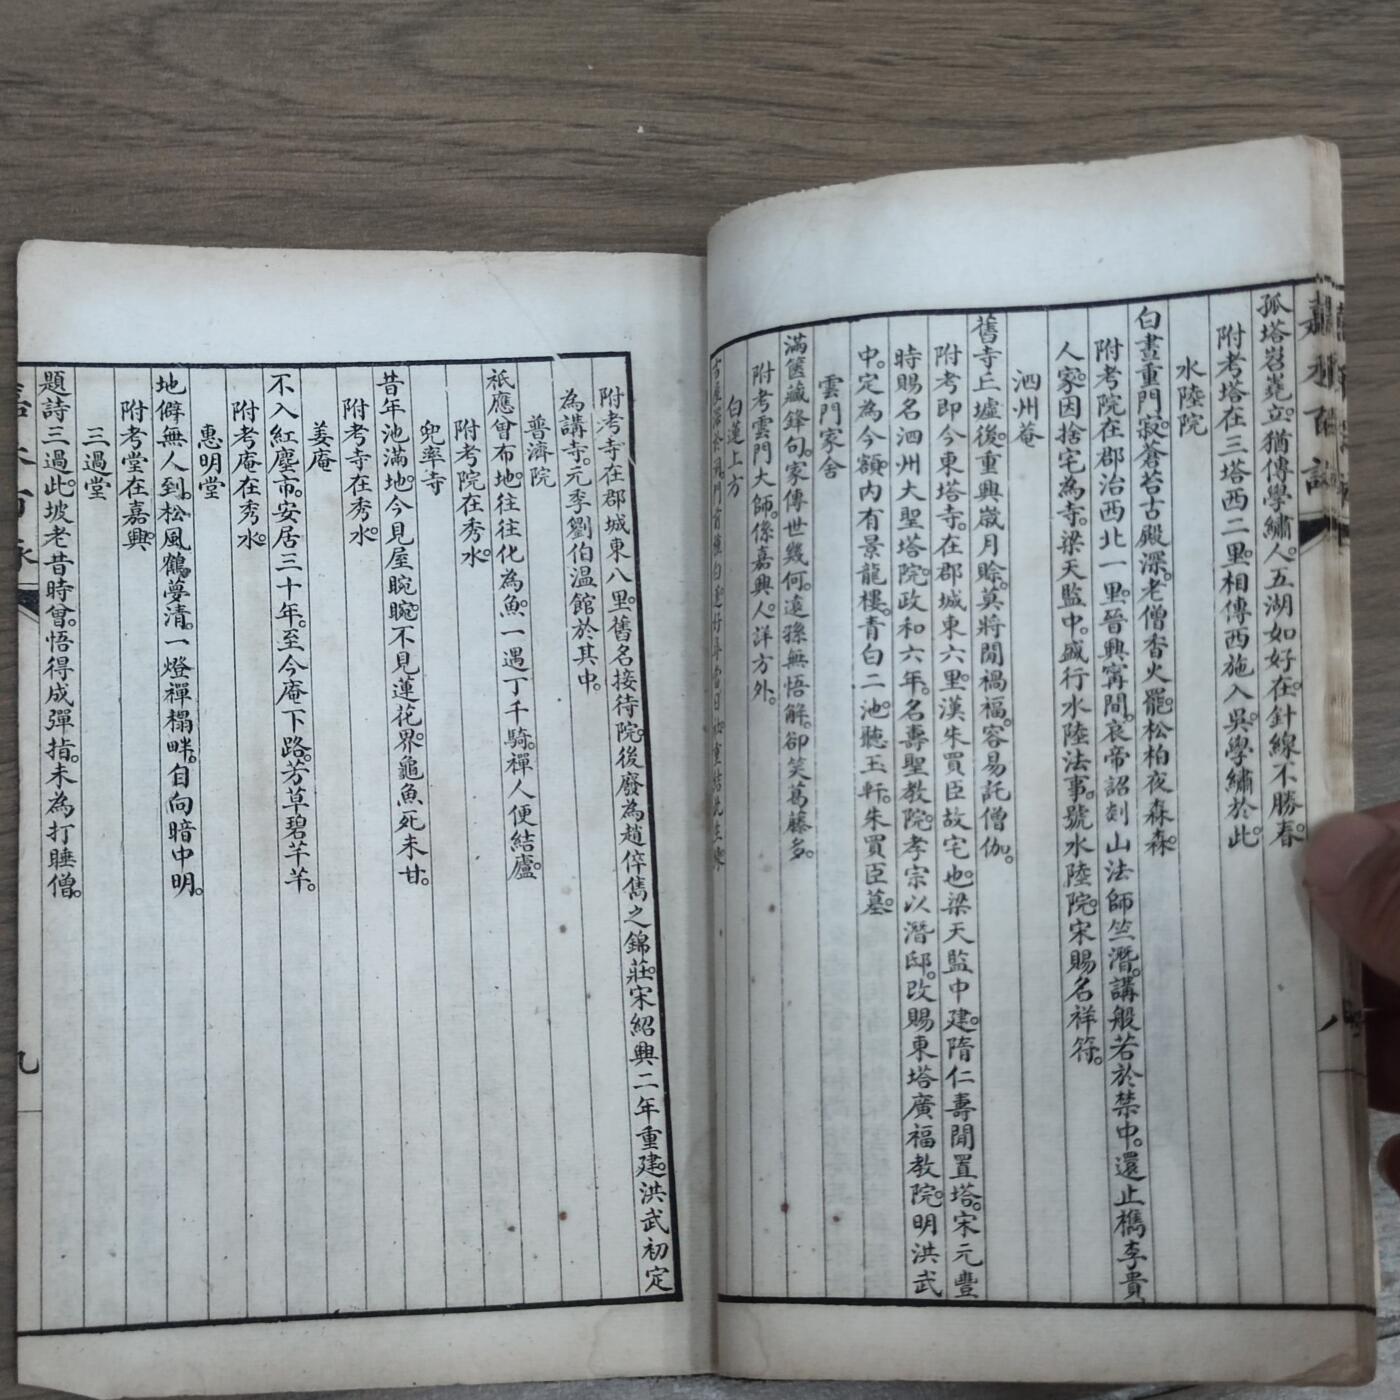 嘉禾百詠
八
孤塔岧嶤立。猶傳學繡人。五湖如好在。針線不勝春。
附考塔在三塔西二里。相傳西施入吳。學繡於此。
水陸院
白晝重門寂。蒼苔古殿深。老僧香火罷。松柏夜森森。
附考院在郡治西北一里。晉興寧間。哀帝詔剡山法師竺潛。講般若於禁中。還止檇李貴
人家。因捨宅為寺。梁天監中。盛行水陸法事。號水陸院。宋賜名祥符。
泗州菴
舊寺丘墟後。重興歲月賒。莫將閒禍福。容易託僧伽。
附考即今東塔寺。在郡城東六里。漢朱買臣故宅也。梁天監中建。隋仁壽間置塔。宋元豐
時賜名泗州大聖塔院。政和六年。名壽聖教院。孝宗以潛邸。改賜東塔廣福教院。明洪武
中。定為今額。內有景龍樓。青白二池。聽玉軒。朱買臣墓。
雲門家舍
滿篋藏鋒句。家傳世幾何。遠孫無悟解。卻笑葛藤多。
附考雲門大師。係嘉興人。詳方外。
白蓮上方
附考寺在郡城東八里。舊名接待院。後廢為趙倅雋之錦莊。宋紹興二年重建。洪武初定
為講寺。元季劉伯温館於其中。
普濟院
祇應曾布地。往往化為魚。一遇丁千騎。禪人便結廬。
附考院在秀水。
兜率寺
昔年池滿地。今見屋畹畹。不見蓮花界。龜魚死未甘。
附考寺在秀水。
姜庵
不入紅塵市。安居三十年。至今庵下路。芳草碧芊芊。
附考庵在秀水。
惠明堂
地僻無人到。松風鶴夢清。一燈禪榻畔。自向暗中明。
附考堂在嘉興。
三過堂
題詩三過此。坡老昔時曾。悟得成彈指。未為打睡僧。
九